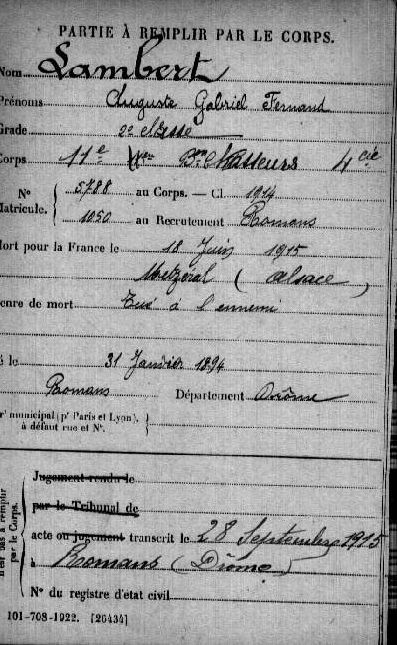 PARTIE À REMPLIR PAR LE CORPS.
Nom Lambert
Prénoms Auguste Gabriel Fernand
Grade 2e classe
Corps 11e Bon Chasseurs 4 cie
N° Matricule. 5788 au Corps. — Cl. 1914
1050 au Recrutement Romans
Mort pour la France le 18 Juin 1915
Metzeral (Alsace)
Genre de mort Tué à l'ennemi
Né le 31 Janvier 1894
Romans Département Drôme
Arr' municipal (p' Paris et Lyon),
à défaut rue et N°.
Jugement rendu le
par le Tribunal de
acte ou jugement transcrit le 28 Septembre 1915
à Romans (Drôme)
N° du registre d'état civil
par le Corps.
101-708-1922. [26434]